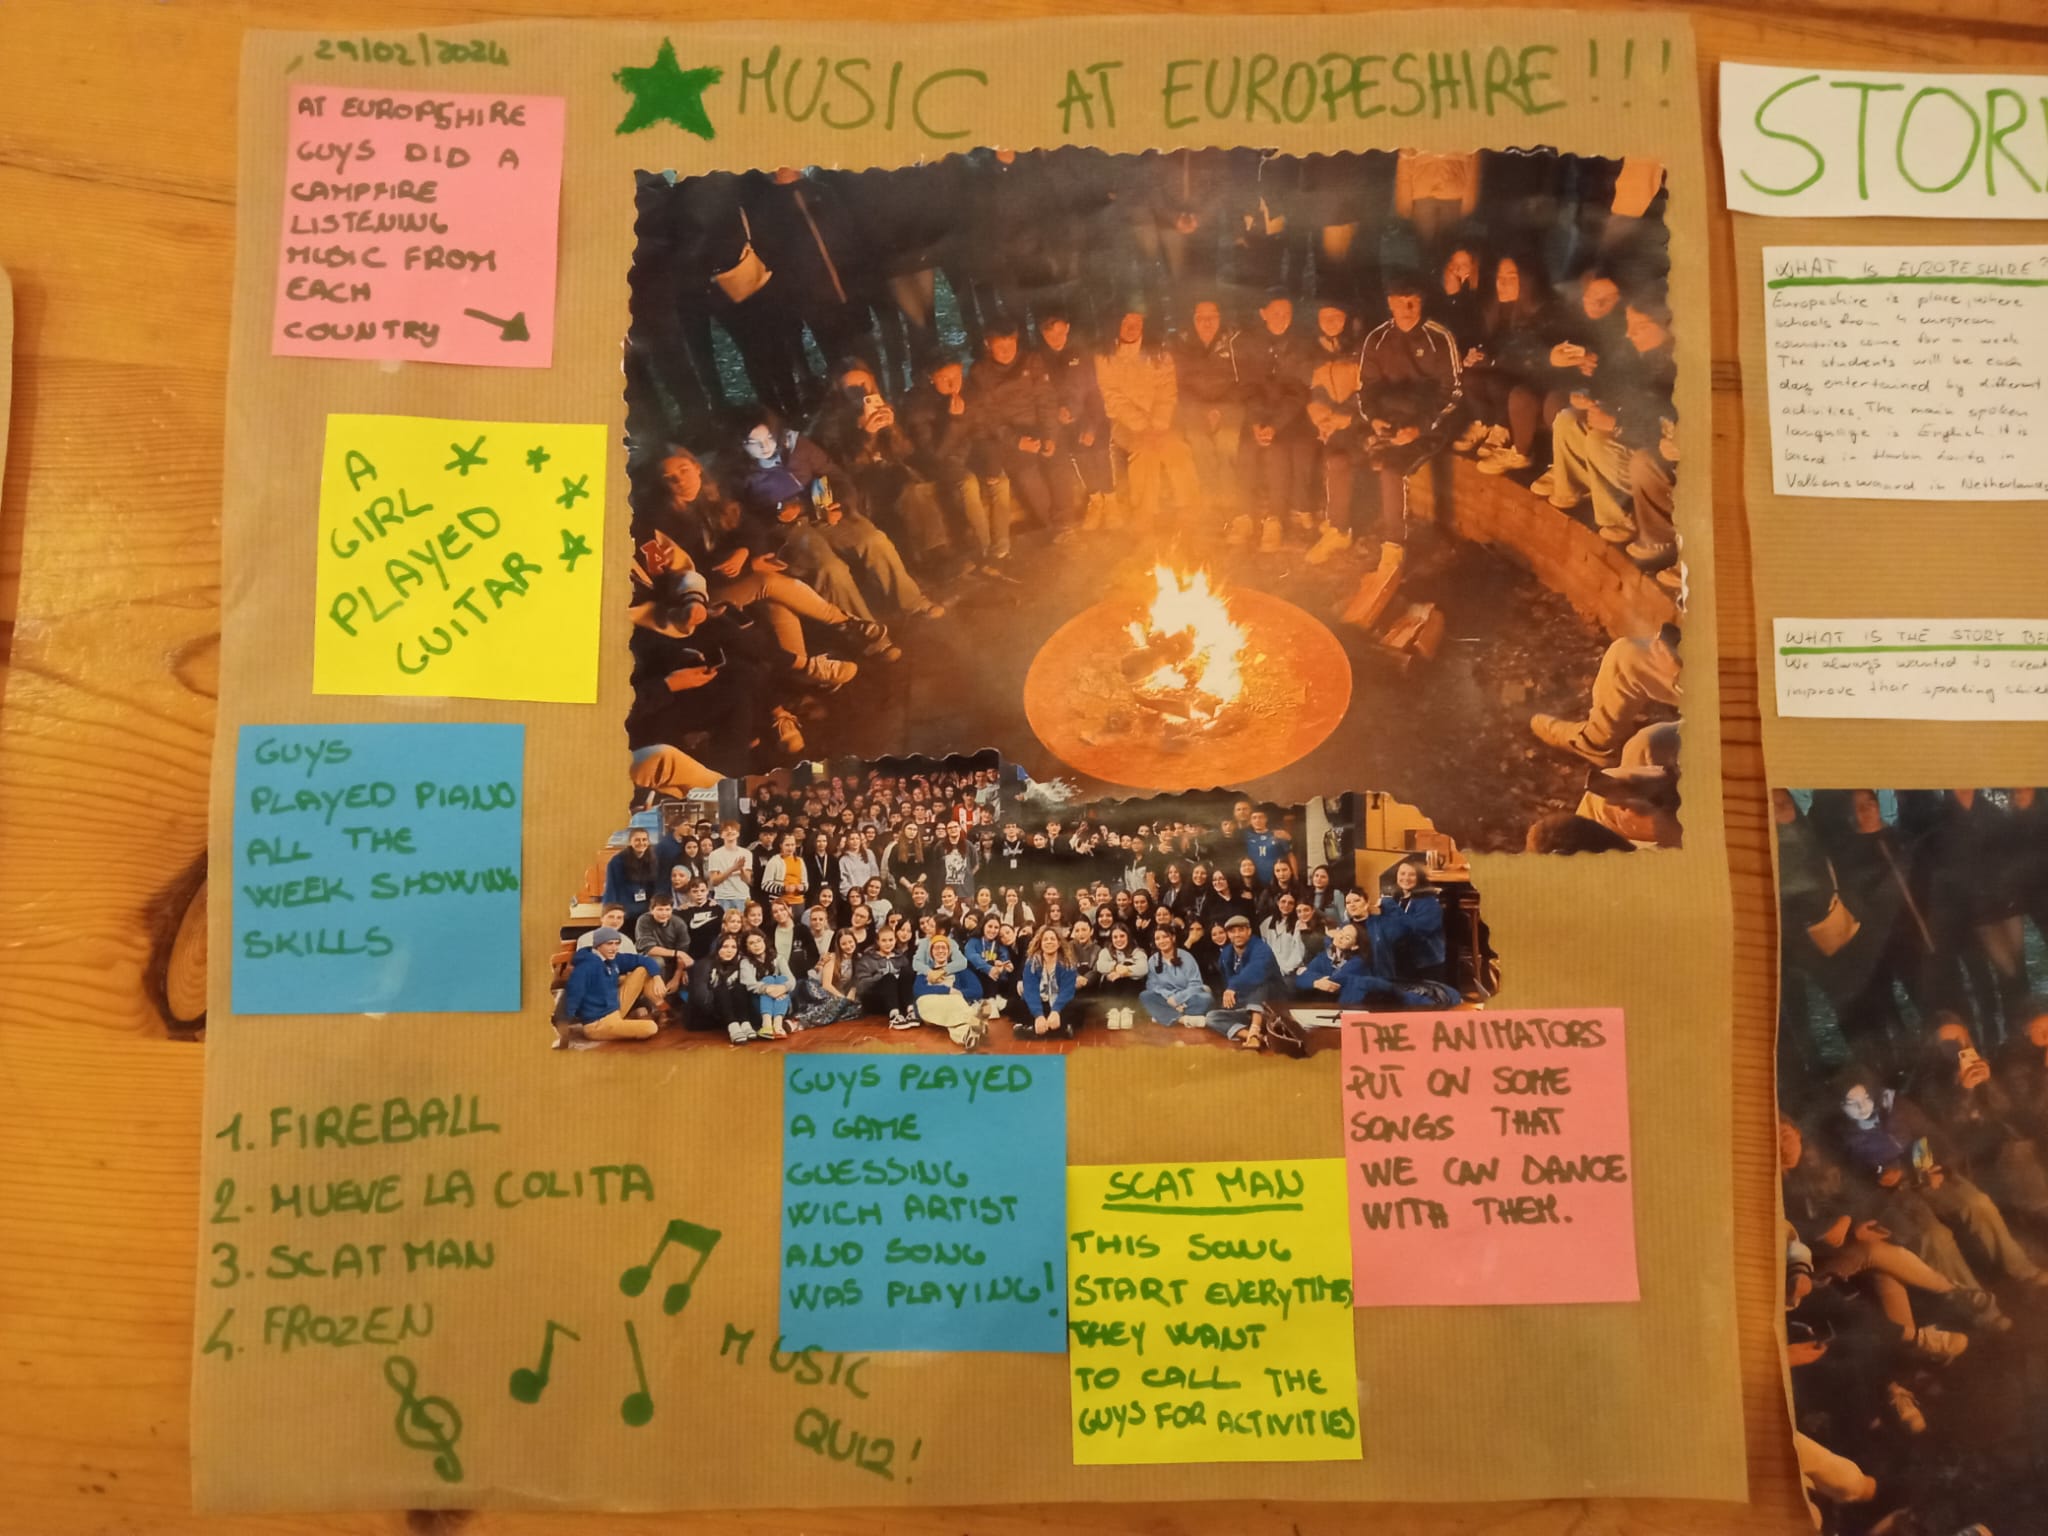 29/02/2024
MUSIC AT EUROPESHIRE!!!
AT EUROPSHIRE
GUYS DID A
CAMPFIRE
LISTENING
MUSIC FROM
EACH
COUNTRY
A
GIRL
PLAYED
GUITAR
GUYS
PLAYED PIANO
ALL THE
WEEK SHOWING
SKILLS
1. FIREBALL
2. MUEVE LA COLITA
3. SCAT MAN
4. FROZEN
GUYS PLAYED
A GAME
GUESSING
WICH ARTIST
AND SONG
WAS PLAYING!
MUSIC
QUIZ!
SCAT MAN
THIS SONG
START EVERYTIMES
THEY WANT
TO CALL THE
GUYS FOR ACTIVITIES
THE ANIMATORS
PUT ON SOME
SONGS THAT
WE CAN DANCE
WITH THEM.
WHAT IS EUROPESHIRE?
Europeshire is place, where
schools from 4 european
countries come for a week
The students will be each
day entertained by different
activities. The main spoken
language is English. It is
based in in
Valkenswaard in
WHAT IS THE STORY
We always wanted to
improve their